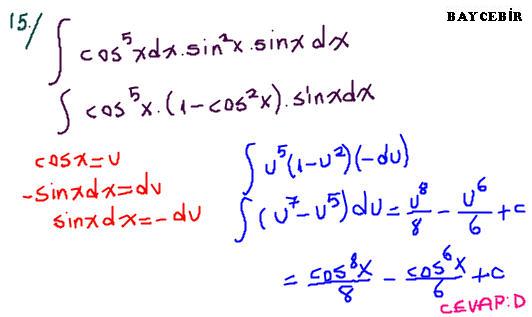 BAYCEBİR
15./ ∫ cos⁵xdx.sin²x.sinx dx
∫ cos⁵x.(1-cos²x).sinxdx
cosx=u
-sinxdx=du
sinxdx=-du
∫ u⁵(1-u²)(-du)
∫ (u⁷-u⁵)du = u⁸/8 - u⁶/6 + c
= cos⁸x/8 - cos⁶x/6 + c
CEVAP:D